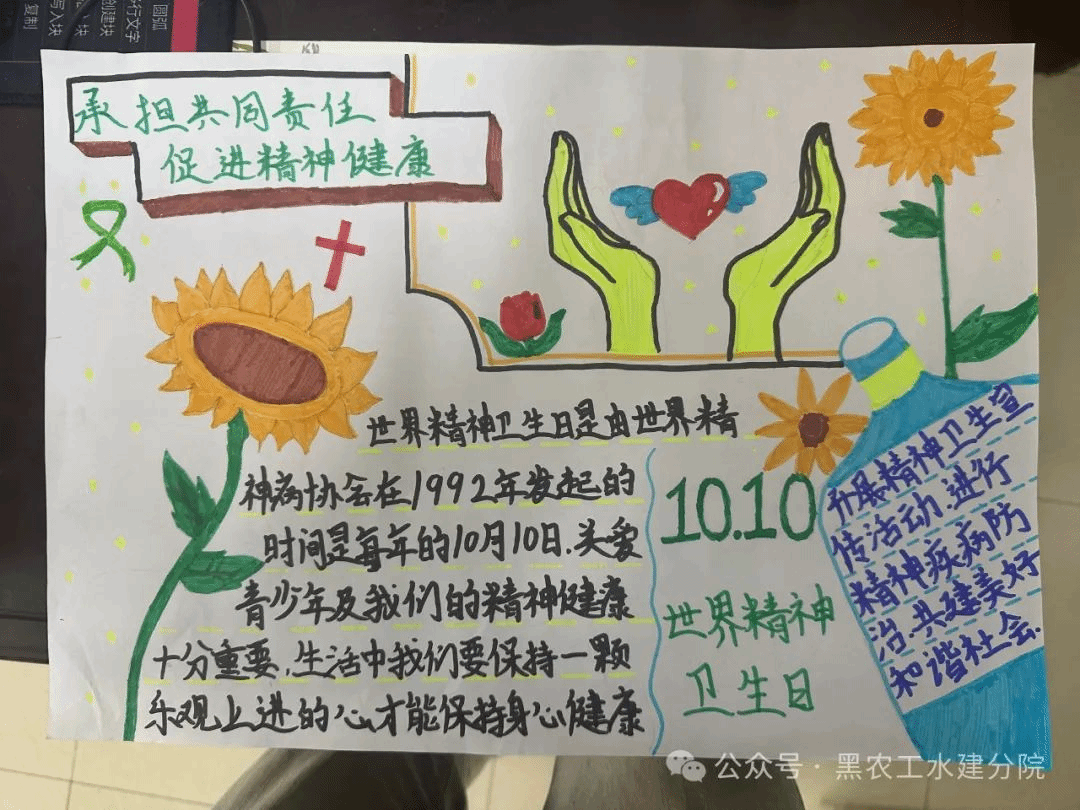 圆弧
行文字
创建块
写入块
复制
承担共同责任
促进精神健康
世界精神卫生日是由世界精
神病协会在1992年发起的
时间是每年的10月10日.关爱
青少年及我们的精神健康
十分重要.生活中我们要保持一颗
乐观上进的心才能保持身心健康
10.10
世界精神
卫生日
开展精神卫生宣
传活动.进行
精神疾病防
治.共建美好
和谐社会.
公众号·黑农工水建分院